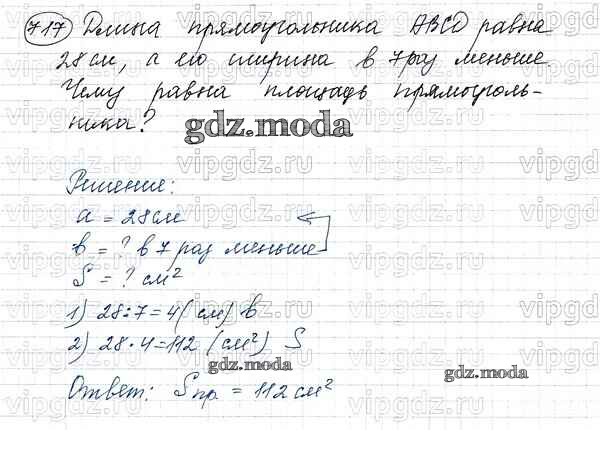 717 Длина прямоугольника ABCD равна
28 см, а его ширина в 7 раз меньше.
Чему равна площадь прямоуголь-
ника?
gdz.moda
Решение:
a = 28 см
b = ? в 7 раз меньше
S = ? см²
1) 28:7=4 (см) b
2) 28·4=112 (см²) S
gdz.moda
gdz.moda
Ответ: Sпр = 112 см²
vipgdz.ru